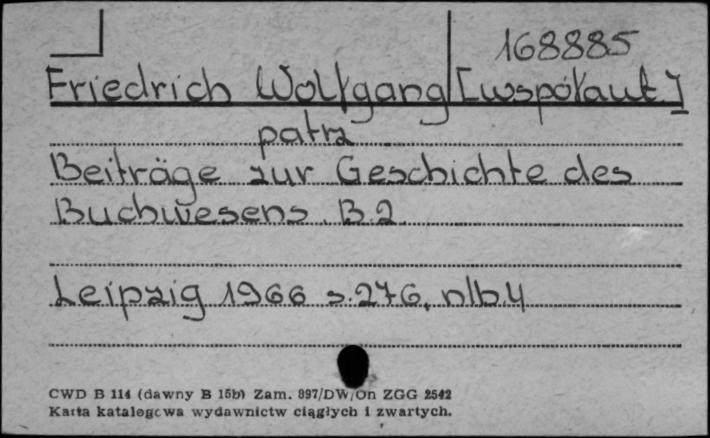 168885
Friedrich Wolfgang [współaut.]
patrz
Beiträge zur Geschichte des
Buchwesens. B.2.
Leipzig 1966 s.276, nlb.4
CWD B 114 (dawny B 15b) Zam. 897/DW/On ZGG 2542
Karta katalogowa wydawnictw ciągłych i zwartych.